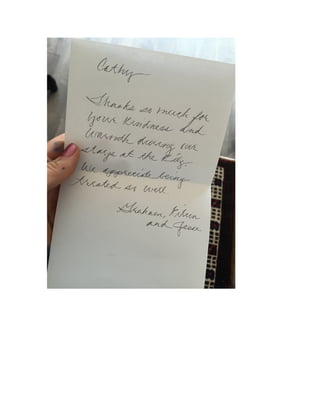 Cathy
Thanks so much for
your kindness and
warmth during our
stays at the
We appreciate being
treated so well
Graham,
and